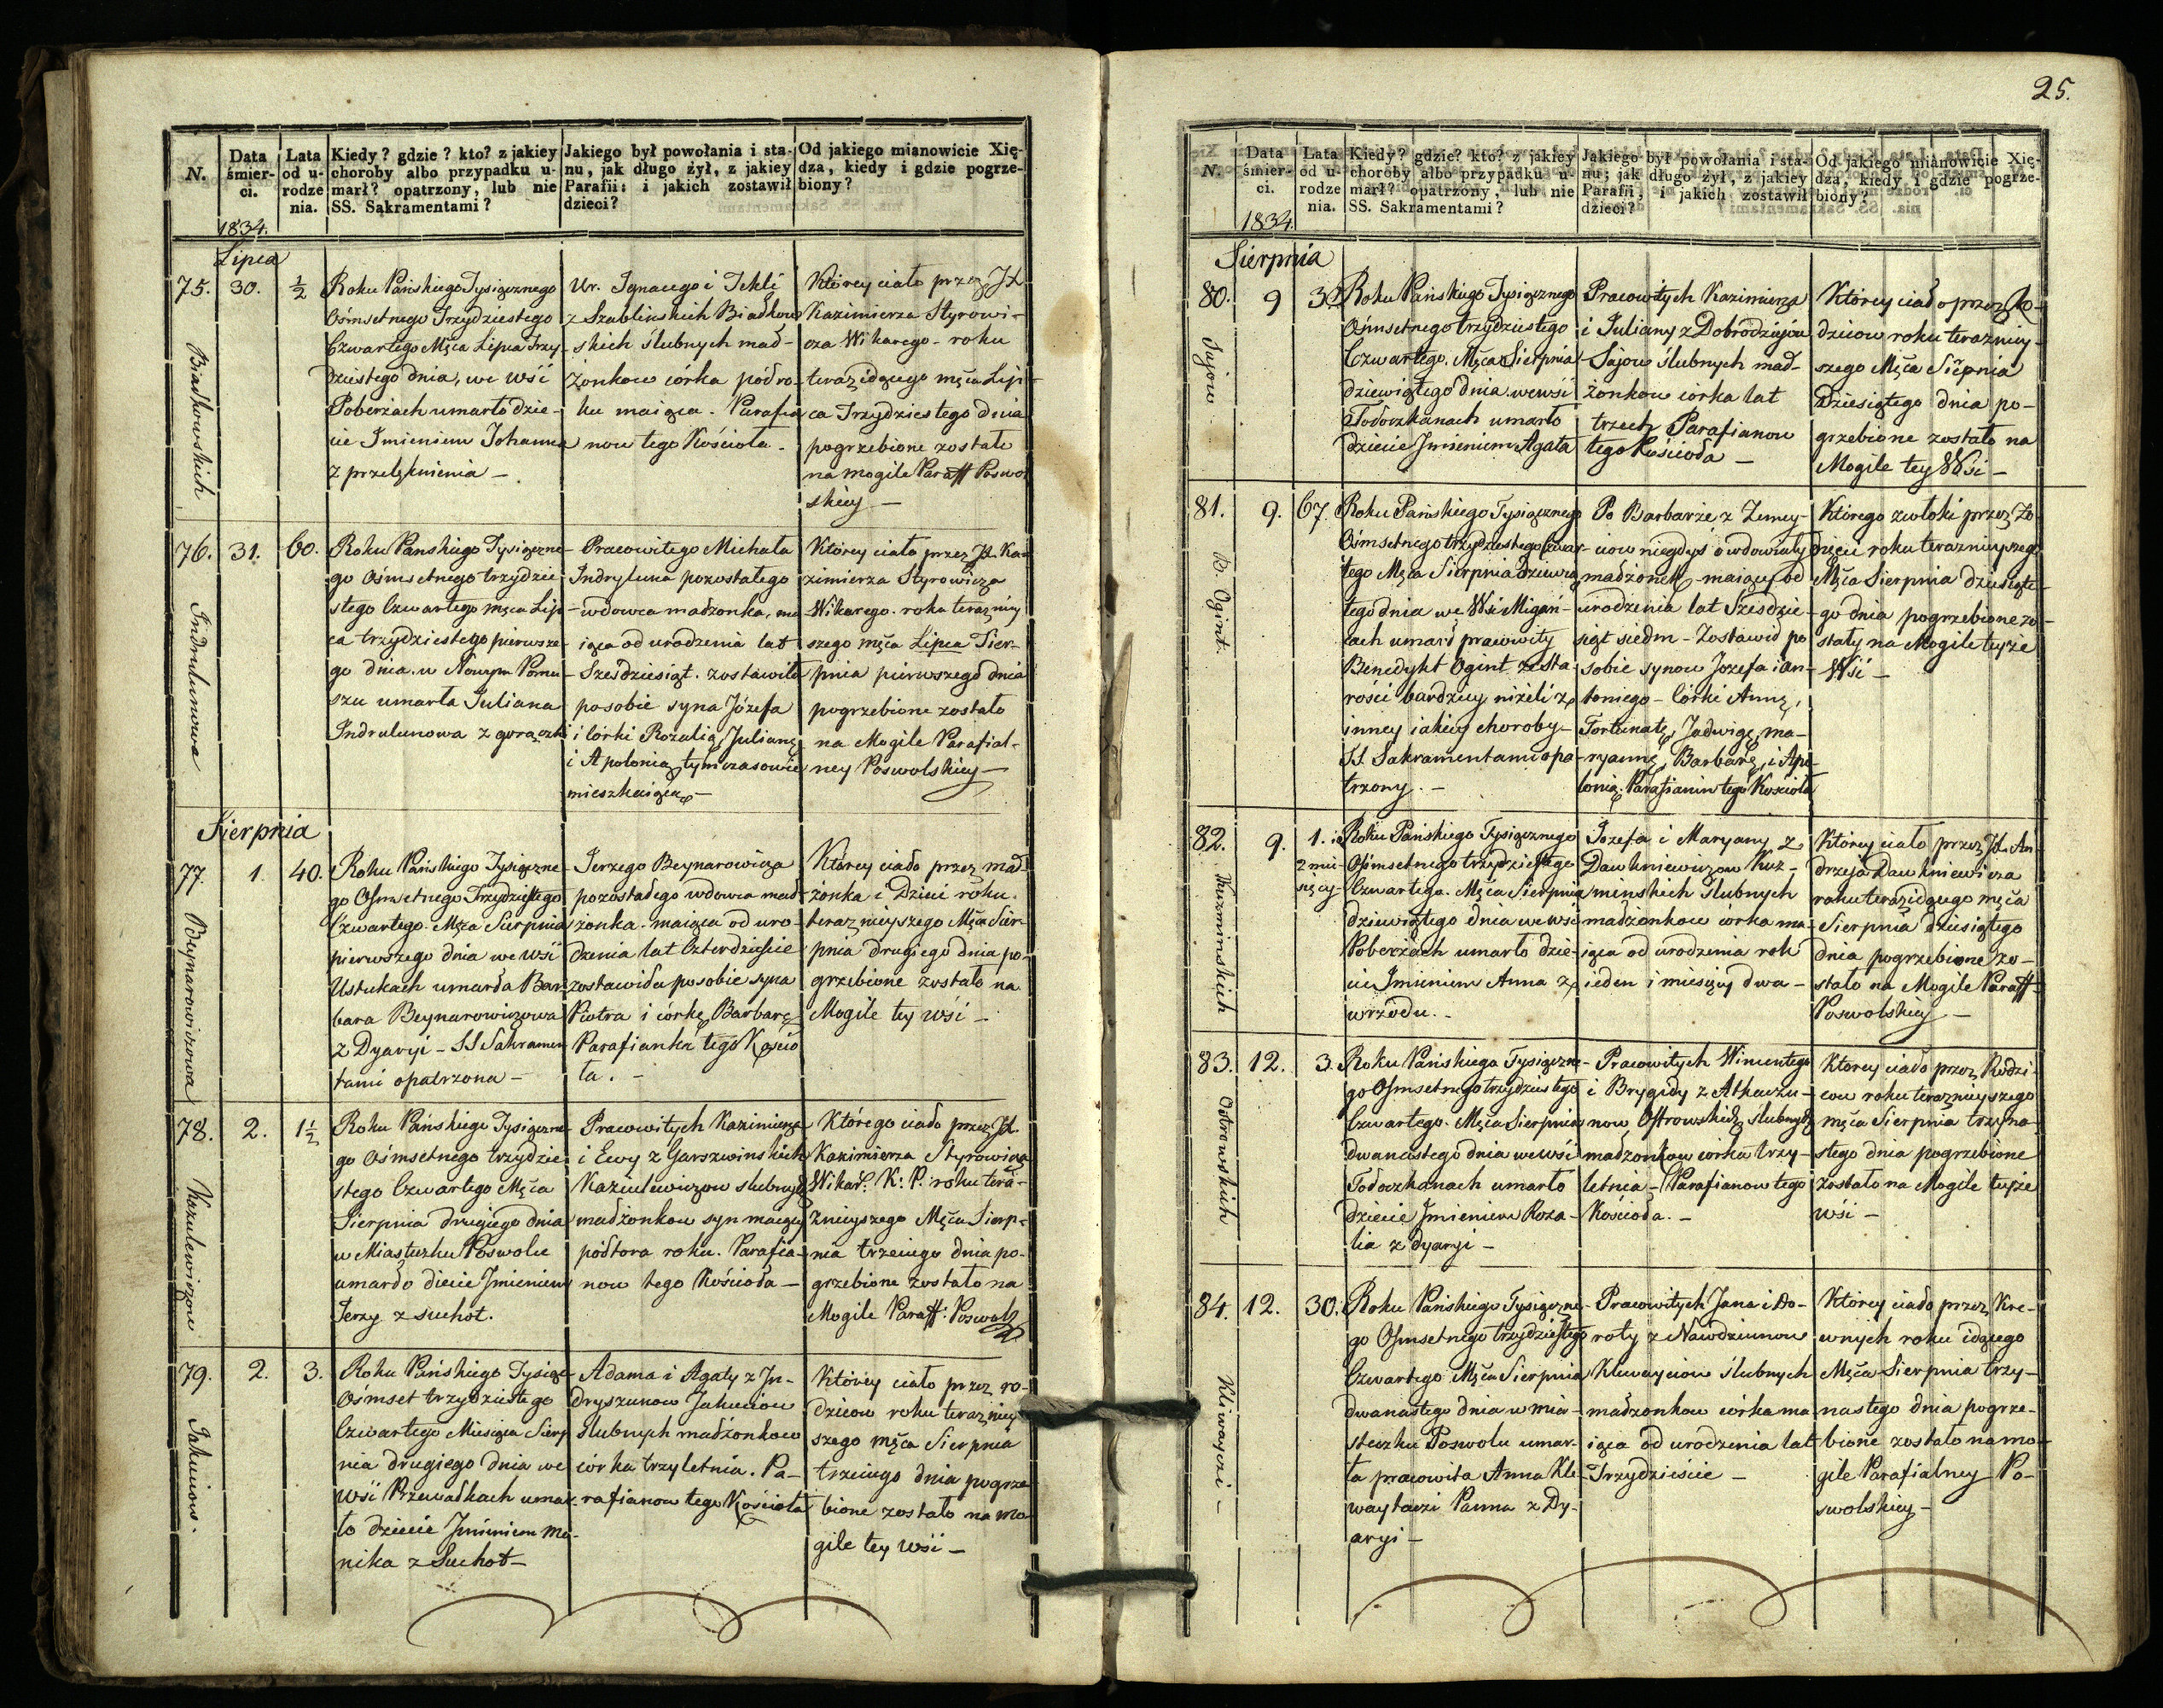 N.
Data śmierci.
1834.
Lata od urodzenia.
Kiedy? gdzie? kto? z jakiey
choroby albo przypadku u-
marł? opatrzony, lub nie
SS. Sakramentami?
Jakiego był powołania i sta-
nu, jak długo żył, z jakiey
Parafii: i jakich zostawił
dzieci?
Od jakiego mianowicie Xię-
dza, kiedy i gdzie pogrze-
biony?
Lipca
75.
Białkowskich
30.
½
Roku Pańskiego Tysiącznego
Ośmsetnego Trzydziestego
Czwartego Męca Lipca Trzy-
dziestego dnia, we wśi
Poberżach umarło dzie-
cie Imieniem Johanna
z przelęknienia —
Ur. Ignacego i Tekli
z Szablinskich Białkow-
skich ślubnych mał-
żonkow córka półro-
ku maiąca. Parafia
now tego Kościoła.
Którey ciało przez JX
Kazimierza Styrowi-
cza Wikarego - roku
teraz idącego męca Lip-
ca Trzydziestego dnia
pogrzebione zostało
na mogile Paraff Poswol
skiey —
76.
Indrulunowa
31.
60.
Roku Panskiego Tysiączne-
go Ośmsetnego trzydzie
stego Czwartego męca Lip-
ca trzydziestego pierwsze-
go dnia. w Nowym Pomu-
szu umarła Juliana
Indrulunowa z gorączki
Pracowitego Michała
Indryluna pozostałego
wdowca małżonka, ma
iąca od urodzenia lat
Sześdziesiąt. zostawiła
posobie syna Józefa
i córki Rozalią, Julianę
i Apolonią tymczasowie
mieszkaiące —
Którey ciało przez JX Ka-
zimierza Styrowicza
Wikarego. roku terazniey
szego męca Lipca Sier-
pnia pierwszego dnia
pogrzebione zostało
na Mogile Parafial-
ney Poswolskiey —
Sierpnia
77.
Beynarowiczowa
1.
40.
Roku Pańskiego Tysiączne-
go Osmsetnego Trzydziestego
Czwartego. Męca Sierpnia
pierwszego dnia we wsi
Ustukach umarła Bar-
bara Beynarowiczowa
z Dyaryi - SS Sakramen
tami opatrzona —
Jerzego Beynarowicza
pozostałego wdowca mał-
żonka. maiąca od uro-
dzenia lat Czterdzieście
zostawiła posobie syna
Piotra i córkę Barbarę
Parafianka tego Kościo
ła. —
Którey ciało przez mał-
żonka i Dzieci roku.
teraznieyszego Męca Sier-
pnia drugiego dnia po-
grzebione zostało na
Mogile tey wśi —
78.
Kazulewiczow
2.
1½
Roku Pańskiego Tysiączne-
go Ośmsetnego trzydzie
stego Czwartego Męca
Sierpnia drugiego dnia
w Miasteczku Poswolu
umarło diecie Imieniem
Jerzy z suchot.
Pracowitych Kazimierza
i Ewy z Garszwinskich
Kaziulewiczow slubnych
małżonkow syn maiący
półtora roku. Parafia-
now tego Kościoła —
Którego ciało przez JX.
Kazimierza Styrowicza
Wikar: K: P. roku tera-
znieyszego Męca Sierp-
nia trzeciego dnia po-
grzebione zostało na
Mogile Paraff: Poswol
79.
Jakuciow.
2.
3.
Roku Pańskiego Tysiącz-
Ośmset trzydziestego
Czwartego Miesiąca Sierp
nia drugiego dnia we
Wśi Przewałkach umar-
ło dziecie Imieniem Mo-
nika z Suchot —
Adama i Agaty z In-
dryszunow Jakuciow
Slubnych małżonkow
córka trzyletnia. Pa-
rafianow tego Kościoła
Którey ciało przez ro-
dzicow roku terazniey
szego męca Sierpnia
trzeciego dnia pogrze
bione zostało na mo
gile tey wśi —
25.
N.
Data śmierci.
1834.
Lata od urodzenia.
Kiedy? gdzie? kto? z jakiey
choroby albo przypadku u-
marł? opatrzony, lub nie
SS. Sakramentami?
Jakiego był powołania i sta-
nu; jak długo żył, z jakiey
Parafii, i jakich zostawił
dzieci?
Od jakiego mianowicie Xię-
dza, kiedy i gdzie pogrze-
biony?
Sierpnia
80.
Sajow
9
3.
Roku Pańskiego Tysiącznego
Ośmsetnego trzydziestego
Czwartego. Męca Sierpnia
dziewiątego dnia. we wsi
Todorzkanach umarło
dziecie Imieniem Agata
Pracowitych Kazimierza
i Juliany z Dobrodziejow
Sajow ślubnych mał-
żonkow córka lat
trzech Parafianow
tego Kościoła —
Którey ciało przez Ro-
dzicow roku terazniey-
szego Męca Sierpnia
Dziesiątego dnia po-
grzebione zostało na
Mogile tey Wśi —
81.
B. Ogint.
9.
67.
Roku Pańskiego Tysiącznego
Ośmsetnego trzydziestego Czwar-
tego Męca Sierpnia dziewią
tego dnia we Wsi Migań-
cach umarł pracowity
Benedykt Ogint ze sta-
rości bardziey niżeli z
inney iakiey choroby -
SS. Sakramentami opa-
trzony. —
Po Barbarze z Zemey-
ciow niegdyś owdowiały
małżonek - maiący od
urodzenia lat Szesdzie-
siąt siedm - Zostawił po
sobie synow Jozefa i An-
toniego - Córki Annę,
Fortunatę, Jadwigę, Ma-
ryannę, Barbarę, i Apo
lonią. Parafianin tego Kościoła
Którego zwłoki przez Zo
nięci roku teraznieyszego
Męca Sierpnia dziesiąte-
go dnia pogrzebione zo-
stały na Mogile teyże
Wśi —
82.
Kuzminskich
9.
1. i
2 mie-
sięcy
Roku Pańskiego Tysiącznego
Ośmsetnego trzydziestego
Czwartego. Męca Sierpnia
dziewiątego dnia we wsi
Poberżach umarło dzie-
cie Imieniem Anna z
wrzodu. —
Jozefa i Maryany z
Daukniewiczow Kuz-
menskich Slubnych
małżonkow córka ma-
iąca od urodzenia rok
ieden i miesięcy dwa -
Którey ciało przez JX. An
drzeja Daukniewicza
roku teraz idącego męca
Sierpnia dziesiątego
dnia pogrzebione zo-
stało na Mogile Paraff
Poswolskiey —
83.
Ostrowskich
12.
3.
Roku Pańskiego Tysiączne-
go Osmsetnego trzydziestego
Czwartego. Męca Sierpnia
dwunastego dnia we wśi
Todorzkanach umarło
dziecie Imieniem Roza-
lia z dyaryi —
Pracowitych Wincentego
i Brygidy z Atkoczu-
now Ostrowskich slubnych
małżonkow córka trzy-
letnia - Parafianow tego
Kościoła. —
Ktorey ciało przez Rodzi-
cow roku teraznieyszego
męca Sierpnia trzyna-
stego dnia pogrzebione
zostało na Mogile teyże
wśi —
84.
Kliwayczi —
12.
30.
Roku Pańskiego Tysiączne-
go Osmsetnego trzydziestego
Czwartego Męca Sierpnia
dwanastego dnia w mia-
steczku Poswolu umar-
ła pracowita Anna Kle-
waytaczi Panna z Dy-
aryi —
Pracowitych Jana i Do-
roty z Nawdziunow
Klewayciow ślubnych
małżonkow córka ma
iąca od urodzenia lat
Trzydzieście —
Którey ciało przez Kre-
wnych roku idącego
Męca Sierpnia trzy-
nastego dnia pogrze-
bione zostało na mo-
gile Parafialney Po-
swolskiey —